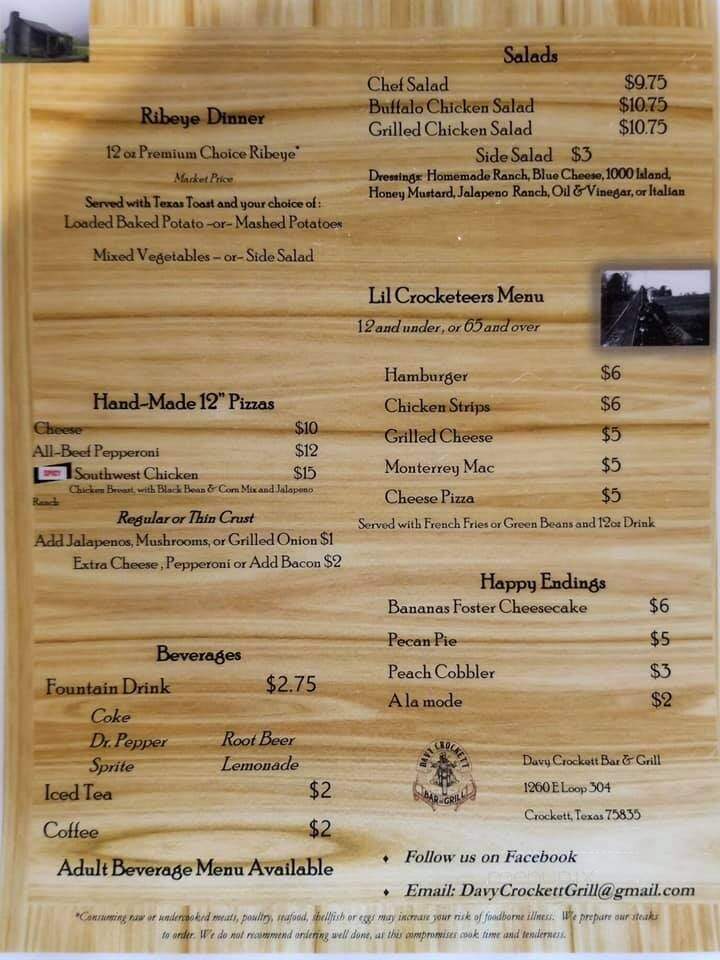 Ribeye Dinner
12 oz Premium Choice Ribeye*
Market Price
Served with Texas Toast and your choice of:
Loaded Baked Potato -or- Mashed Potatoes
Mixed Vegetables – or- Side Salad
Hand-Made 12" Pizzas
Cheese $10
All-Beef Pepperoni $12
SPICY Southwest Chicken $15
Chicken Breast, with Black Bean & Corn Mix and Jalapeno
Ranch
Regular or Thin Crust
Add Jalapenos, Mushrooms, or Grilled Onion $1
Extra Cheese, Pepperoni or Add Bacon $2
Beverages
Fountain Drink $2.75
Coke
Dr. Pepper Root Beer
Sprite Lemonade
Iced Tea $2
Coffee $2
Adult Beverage Menu Available
Salads
Chef Salad $9.75
Buffalo Chicken Salad $10.75
Grilled Chicken Salad $10.75
Side Salad $3
Dressings: Homemade Ranch, Blue Cheese, 1000 Island,
Honey Mustard, Jalapeno Ranch, Oil & Vinegar, or Italian
Lil Crocketeers Menu
12 and under, or 65 and over
Hamburger $6
Chicken Strips $6
Grilled Cheese $5
Monterrey Mac $5
Cheese Pizza $5
Served with French Fries or Green Beans and 12oz Drink
Happy Endings
Bananas Foster Cheesecake $6
Pecan Pie $5
Peach Cobbler $3
A la mode $2
DAVY CROCKETT
BAR & GRILL
Davy Crockett Bar & Grill
1260 E Loop 304
Crockett, Texas 75835
♦ Follow us on Facebook
♦ Email: DavyCrockettGrill@gmail.com
*Consuming raw or undercooked meats, poultry, seafood, shellfish or eggs may increase your risk of foodborne illness. We prepare our steaks
to order. We do not recommend ordering well done, as this compromises cook time and tenderness.